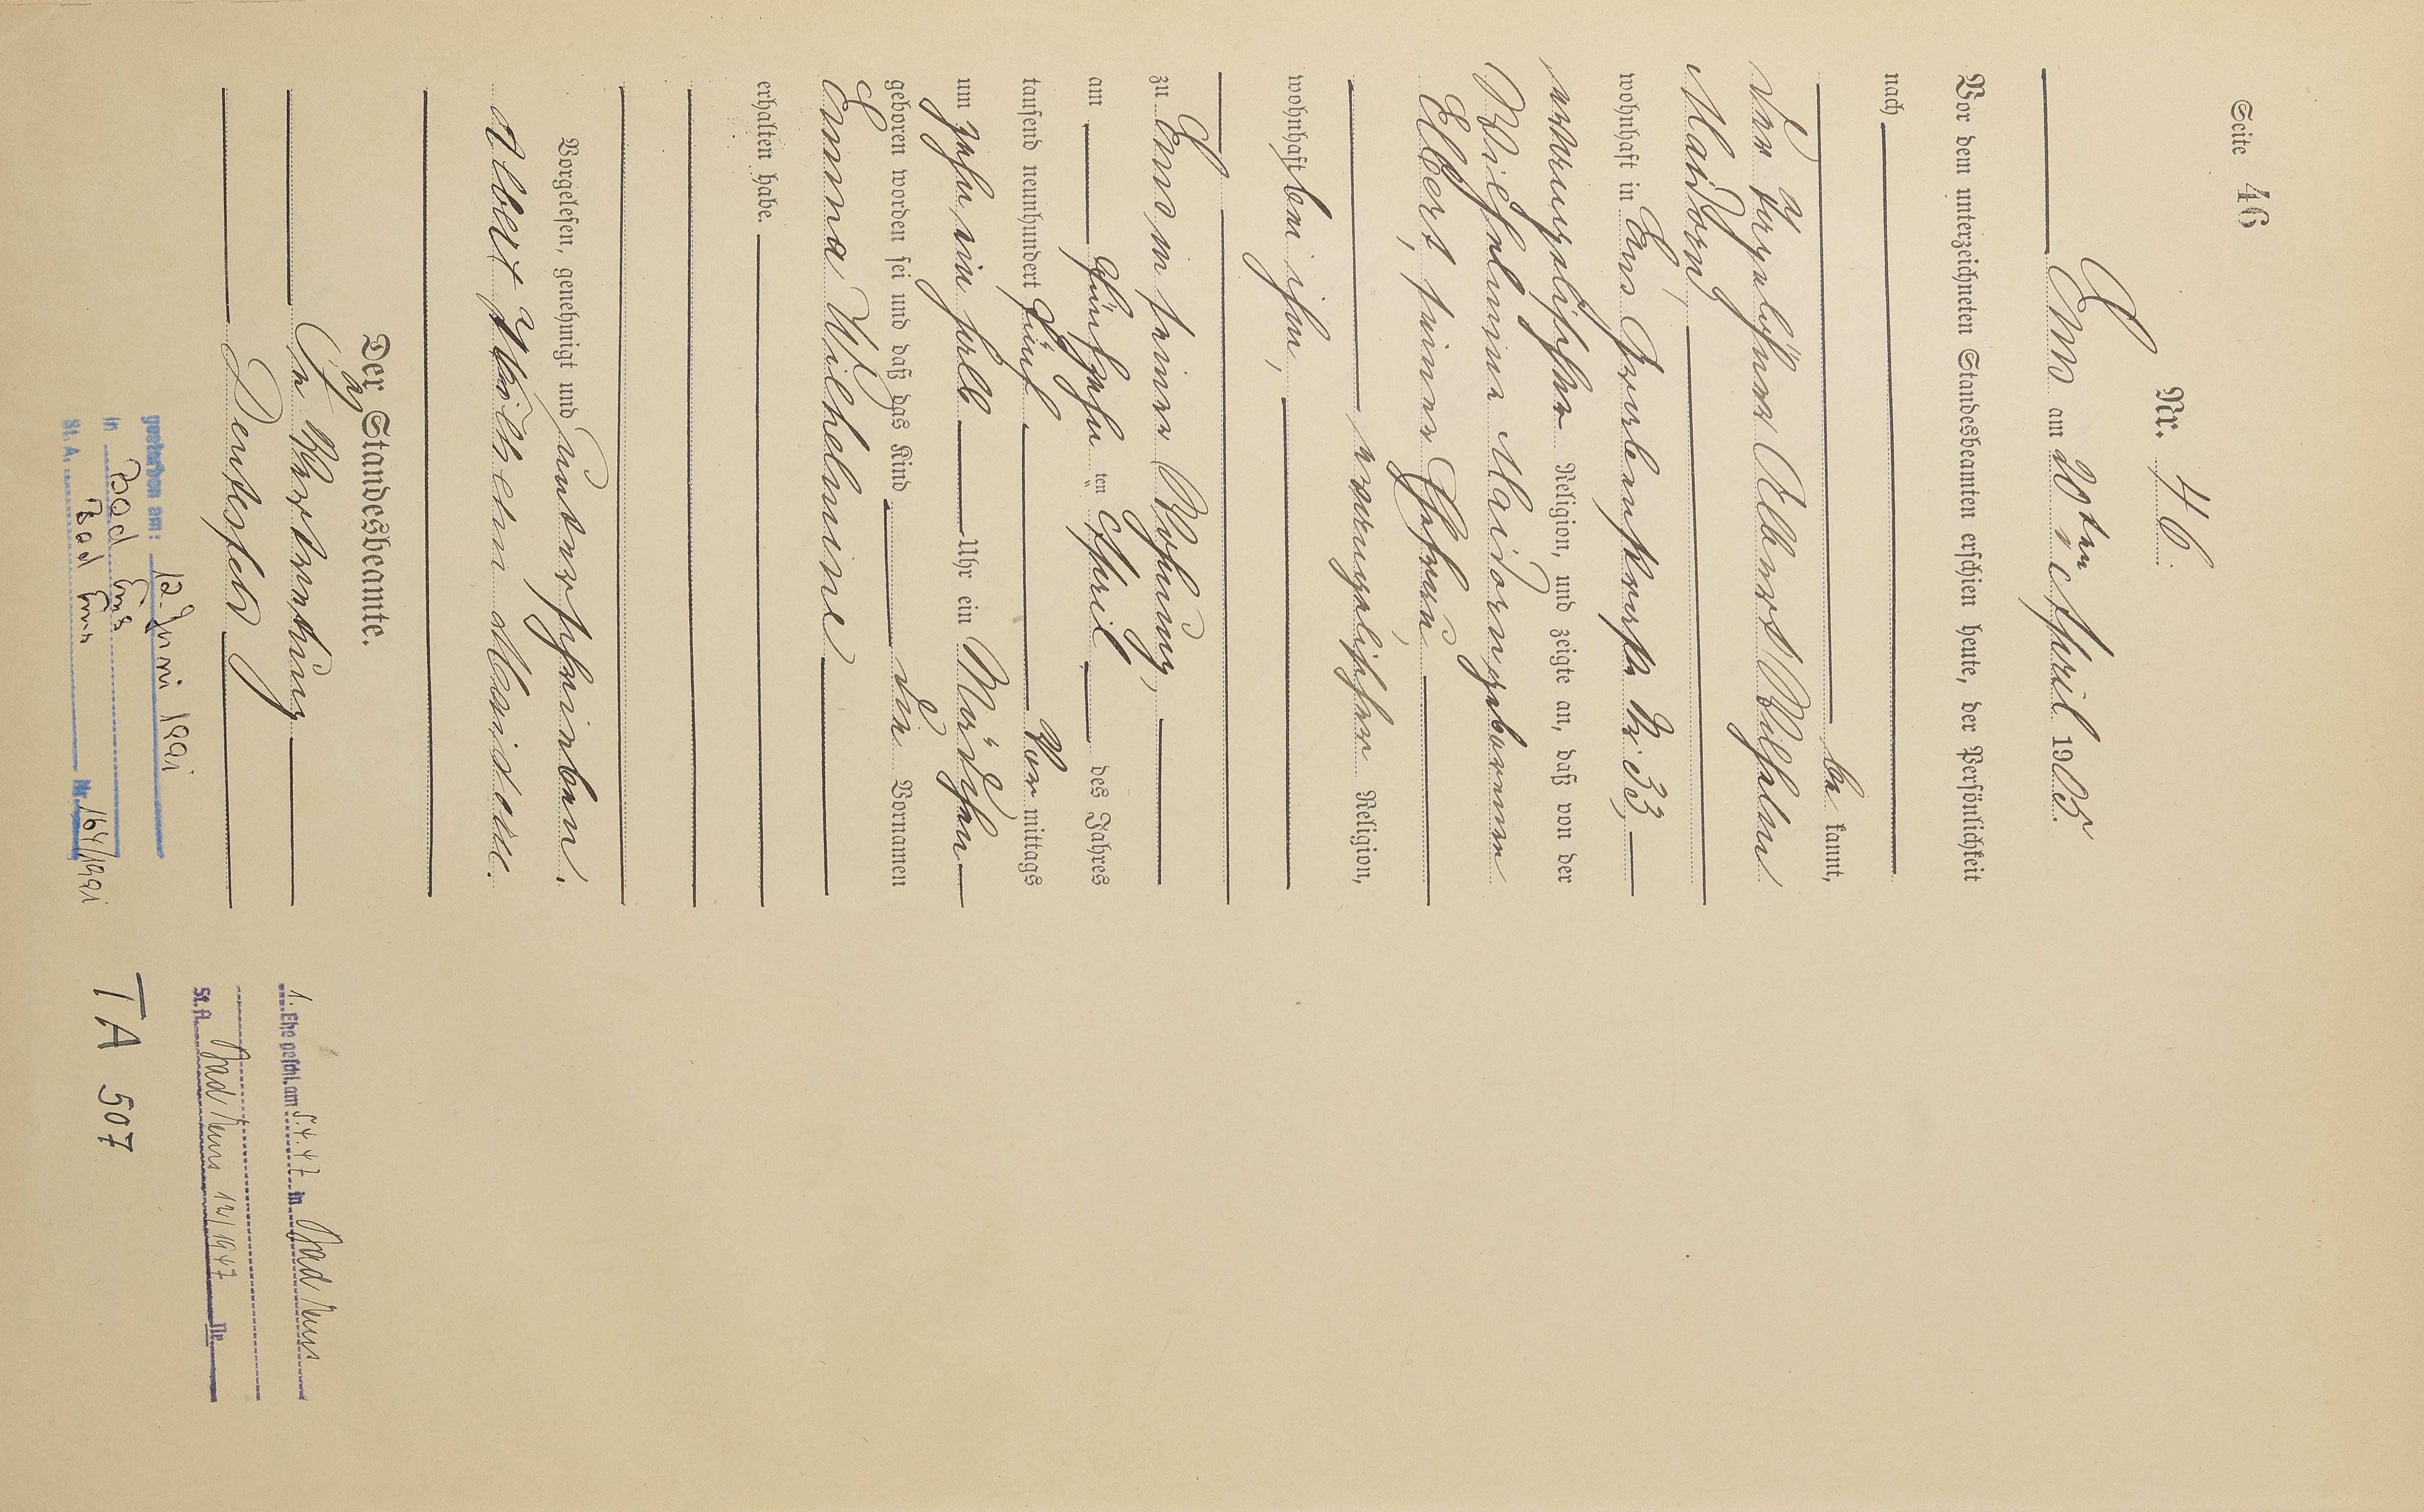 Seite 46
Nr. 46.
Ems am 20ten April 1905.
Vor dem unterzeichneten Standesbeamten erschien heute, der Persönlichkeit
nach
be kannt,
der Taglöhner Albert Wilhelm
Maidorn,
wohnhaft in Ems Grabenstraße № 33,
evangelischer Religion, und zeigte an, daß von der
Wilhelmine Maidorn geborenen
Elbert, seiner Ehefrau
evangelischer Religion,
wohnhaft bei ihm,
zu Ems in seiner Wohnung,
am fünfzehn ten April des Jahres
tausend neunhundert fünf Vor mittags
um zehn ein halb Uhr ein Mädchen
geboren worden sei und daß das Kind die Vornamen
Emma Wilhelmine
erhalten habe.
Vorgelesen, genehmigt und unterschrieben.
Albert Wilhelm Maidorn.
Der Standesbeamte.
In Vertretung
gestorben am: 12. Juni 1991
in Bad Ems
St. A. Bad Ems Nr. 164/1991
1. Ehe geschl. am 5.4.47 in Bad Ems
St. A. Bad Ems 12/1947 Nr.
TA 507